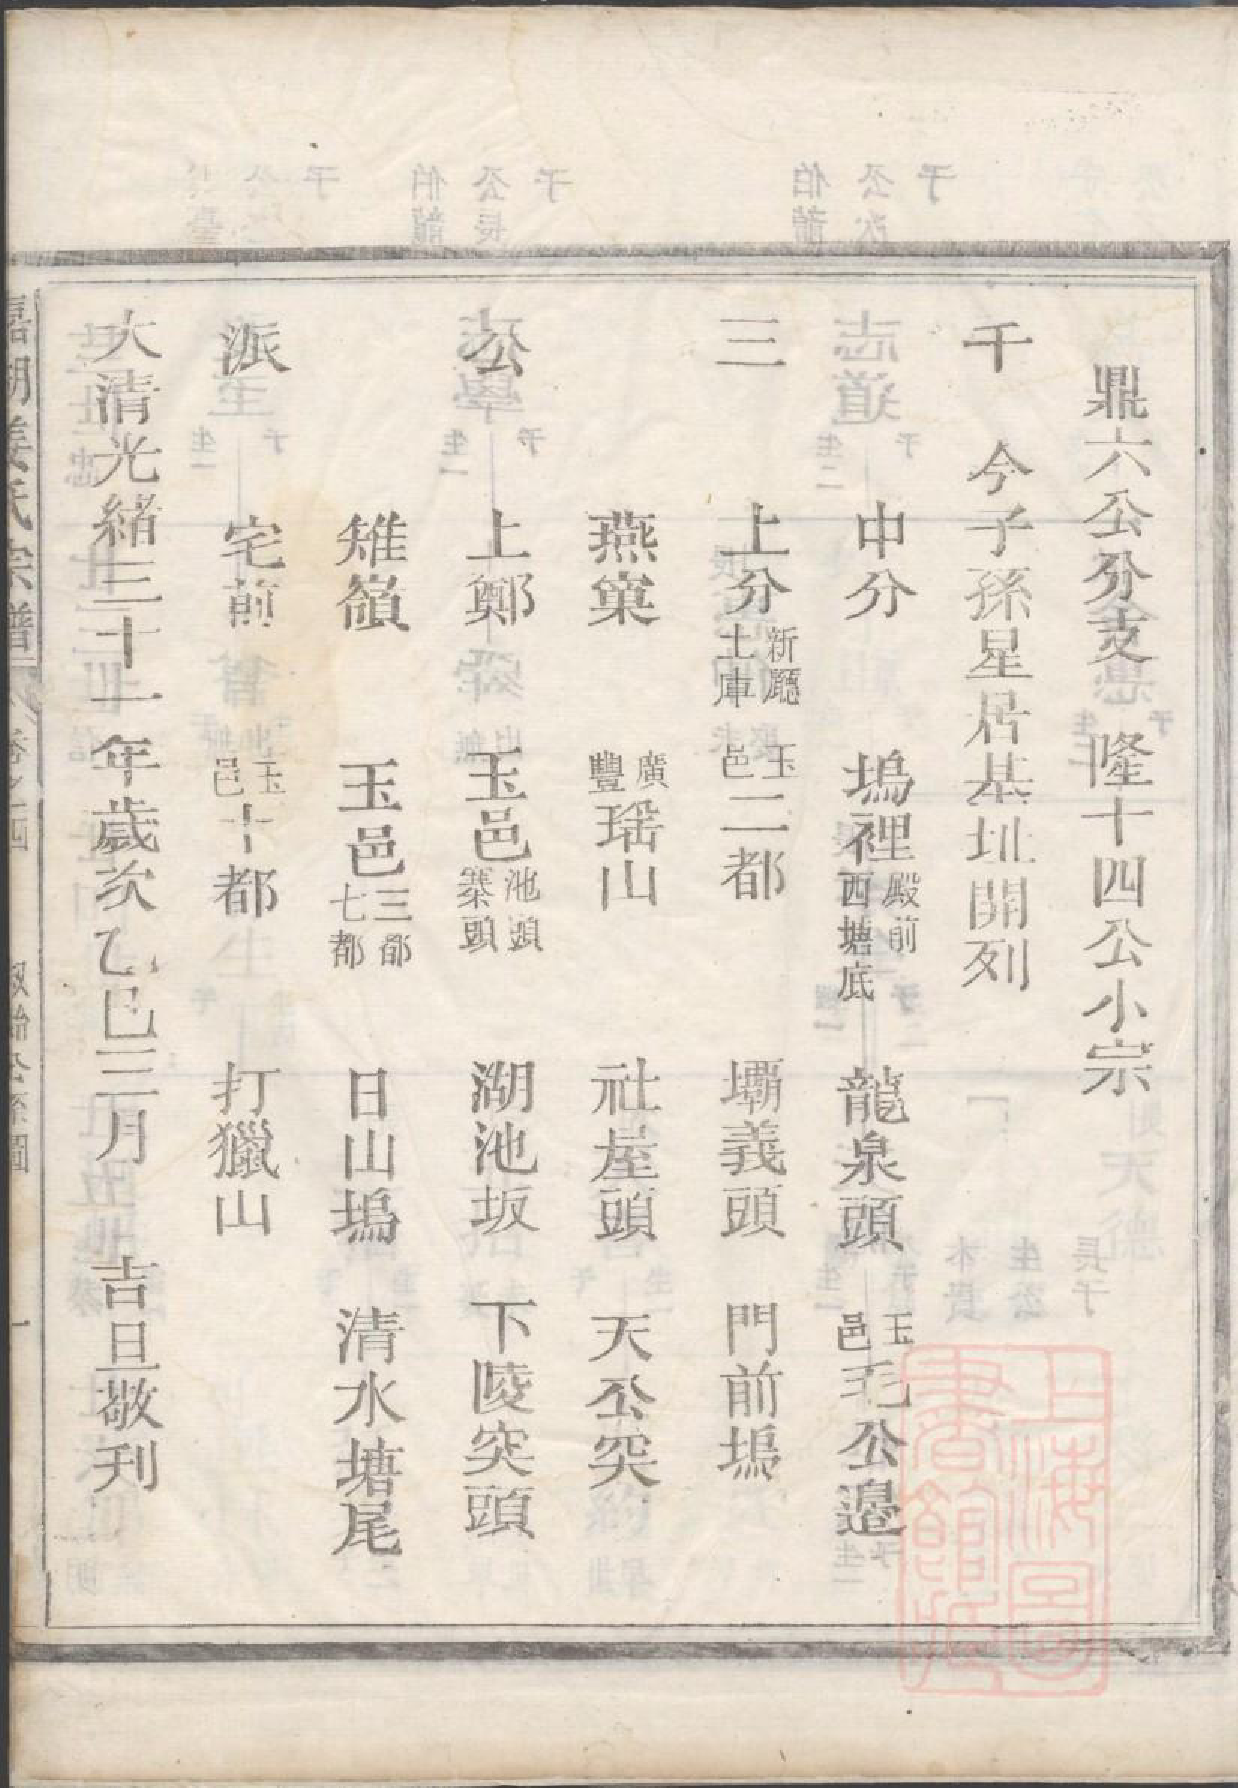 鼎六公分支　隆十四公小宗
千　今子孫星居基址開列
中分　塢裡殿前西塘底　龍泉頭　玉邑毛公邉
三　上分新廳土庫　玉邑二都　壩義頭　門前塢
燕窠　廣豐瑶山　社屋頭　天公突
公　上鄭　玉邑池頭寨頭　湖池坂　下陵突頭
雉嶺　玉邑三都七都　日山塢　清水塘尾
派　宅前　玉邑十都　打獵山
大清光緒三十一年歲次乙巳三月　吉旦敬刊
姜氏宗譜　卷之四　一
上海圖書館藏